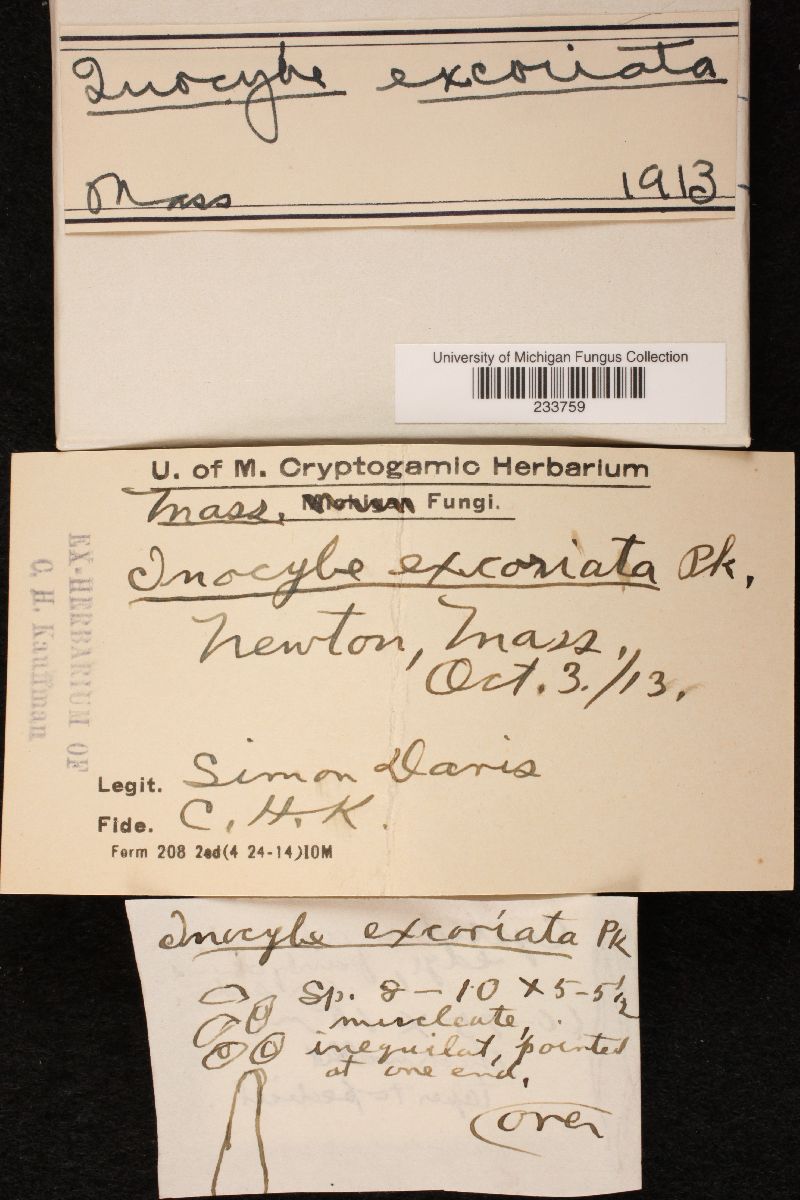 Inocybe excoriata
Mass 1913
University of Michigan Fungus Collection
233759
U. of M. Cryptogamic Herbarium
Mass. Michigan Fungi.
Inocybe excoriata Pk.
Newton, Mass.,
Oct. 3./13.
EX-HERBARIUM OF
C. H. Kauffman
Legit. Simon Davis
Fide. C. H. K.
Form 208 2ed(4 24-14)10M
Inocybe excoriata Pk
Sp. 8-10 x 5-5½
nucleate,
inequilat, pointed
at one end.
Over